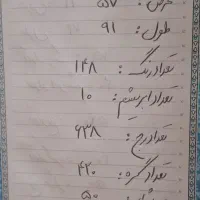 عرض : ۵۷
طول : ۹۱
تعداد رنگ : ۱۴۸
تعداد ابریشم : ۱۰
تعداد رج : ۶۳۸
تعداد گره : ۴۲۰
۵۰